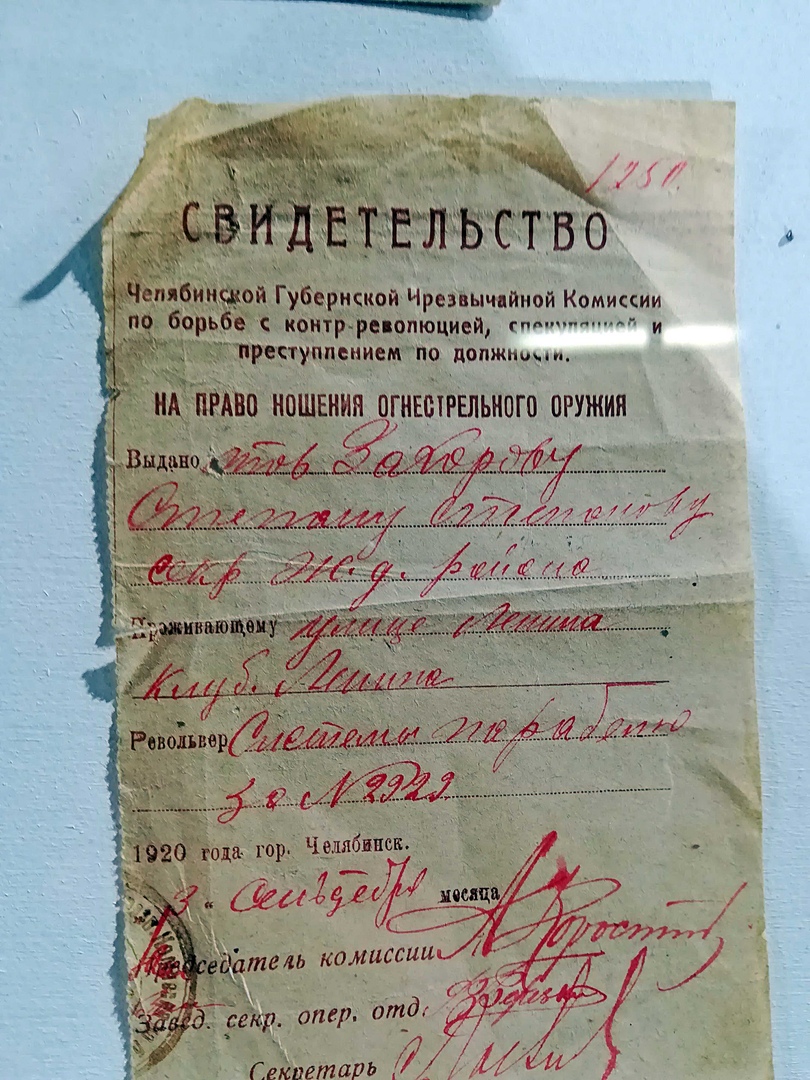 1250
СВИДЕТЕЛЬСТВО
Челябинской Губернской Чрезвычайной Комиссии
по борьбе с контр-революцией, спекуляцией и
преступлением по должности.
НА ПРАВО НОШЕНИЯ ОГНЕСТРЕЛЬНОГО ОРУЖИЯ
Выдано тов Захорову
Степану Степанову
секр Ж.д. района
Проживающему улице Ленина
Клуб. Ленина
Револьвер Системы парабелю
за № 2929
1920 года гор. Челябинск.
"3" сентебря месяца
Председатель комиссии
Завед. секр. опер. отд.
Секретарь